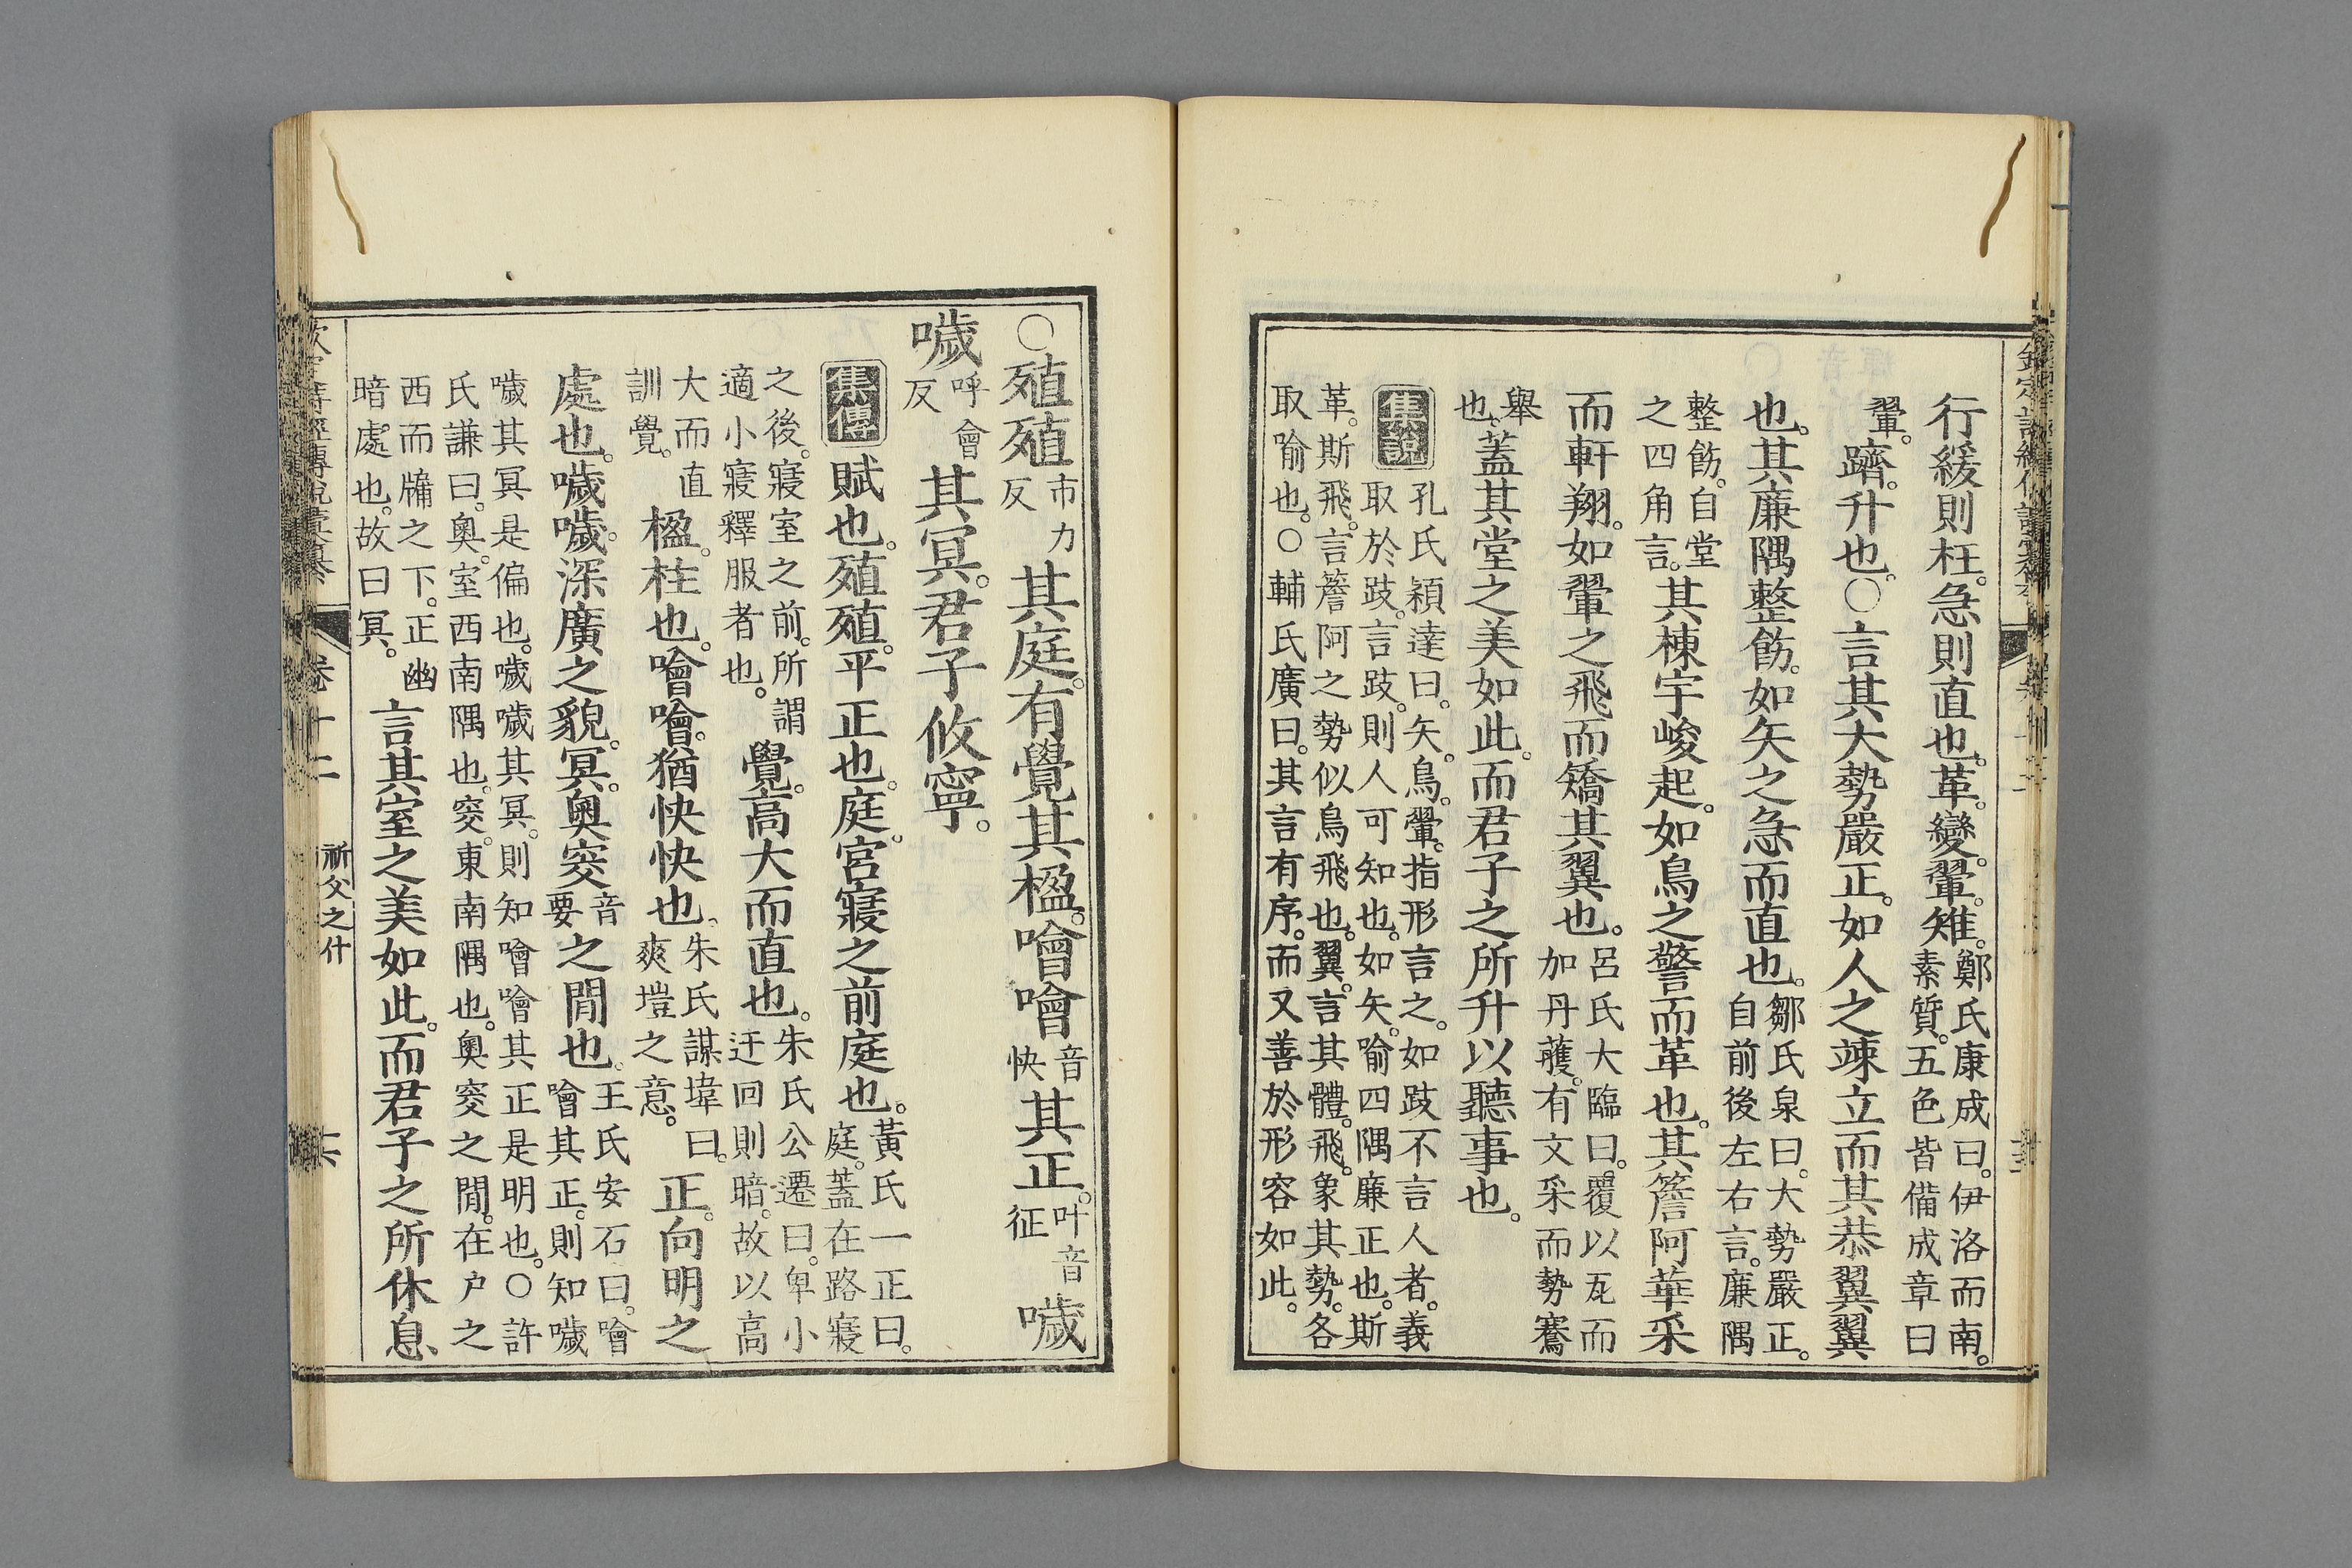 行緩則枉。急則直也。革。變。翬。雉。鄭氏康成曰。伊洛而南。
素質。五色皆備成章曰
翬。躋。升也。〇言其大勢嚴正。如人之竦立而其恭翼翼
也。其廉隅整飭。如矢之急而直也。鄒氏泉曰。大勢嚴正。
自前後左右言。廉隅
整飭。自堂
之四角言。其棟宇峻起。如鳥之警而革也。其簷阿華采
而軒翔。如翬之飛而矯其翼也。呂氏大臨曰。覆以瓦而
加丹雘。有文采而勢騫
舉
也。蓋其堂之美如此。而君子之所升以聽事也。
集說 孔氏穎達曰。矢。鳥。翬。指形言之。如跂不言人者。義
取於跂。言跂。則人可知也。如矢。喻四隅廉正也。斯
革。斯飛。言簷阿之勢似鳥飛也。翼。言其體。飛。象其勢。各
取喻也。〇輔氏廣曰。其言有序。而又善於形容如此。
〇殖殖市力
反其庭。有覺其楹。噲噲音
快其正。叶音
征噦
噦呼會
反其冥。君子攸寧。
集傳 賦也。殖殖。平正也。庭。宮寢之前庭也。黃氏一正曰。
庭。蓋在路寢
之後。寢室之前。所謂
適小寢釋服者也。覺。高大而直也。朱氏公遷曰。卑小
迂回則暗。故以高
大而直
訓覺。楹。柱也。噲噲。猶快快也。朱氏謀㙔曰。
爽塏之意。正。向明之
處也。噦噦。深廣之貌。冥。奥窔音
要之閒也。王氏安石曰。噲
噲其正。則知噦
噦其冥是偏也。噦噦其冥。則知噲噲其正是明也。〇許
氏謙曰。奥。室西南隅也。窔。東南隅也。奥窔之閒。在户之
西而牖之下。正幽
暗處也。故曰冥。言其室之美如此。而君子之所休息
卷十二
祈父之什